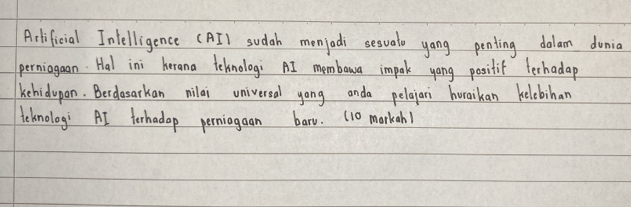 Artificial Intelligence (AI) sudah menjadi sesuatu yang penting dalam dunia
perniagaan. Hal ini kerana teknologi AI membawa impak yang positif terhadap
kehidupan. Berdasarkan nilai universal yang anda pelajari huraikan kelebihan
teknologi AI terhadap perniagaan baru. (10 markah)